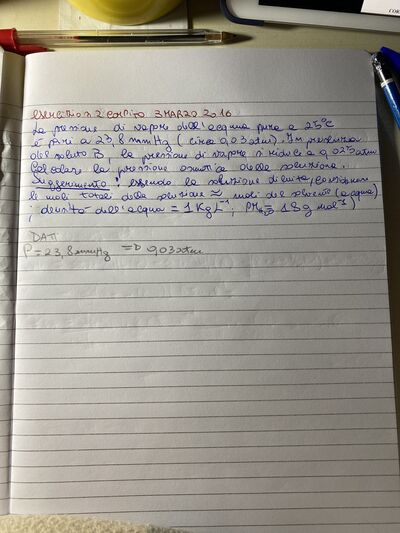 esercizio n 2 compito 3 MARZO 2016
La pressione di vapore dell'acqua pura a 25°C
è pari a 23,8 mmHg (circa 0,03 atm). In presenza
del soluto B, la pressione di vapore si riduce a 0,025 atm
Calcolare la pressione osmotica della soluzione.
Suggerimento: essendo la soluzione diluita, considerare
le moli totali della soluzione ≈ moli del solvente (acqua)
; densità dell'acqua = 1 Kg L⁻¹; PM = 18 g mol⁻¹)
DATI
P = 23,8 mmHg => 0,03 atm